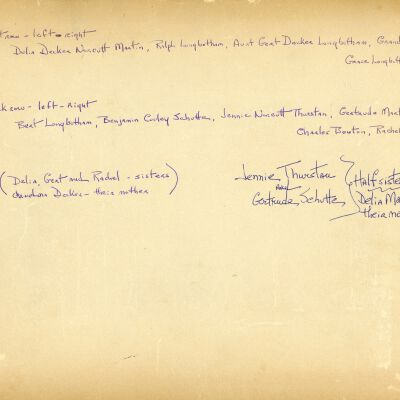 t row - left - right
Delia Decker Norcutt Martin, Ralph Longbotham, Aunt Gert Decker Longbotham, Grand
Grace Longbotha
ck row - left - right
Bert Longbotham, Benjamin Corley Schutte, Jennie Norcutt Thurstan, Gertrude Mart
Charles Bouton, Rachel
(Delia, Gert and Rachel - sisters
Grandma Decker - their mother)
Jennie Thurstan
and
Gertrude Schutte
Half siste
Delia Ma
their mo